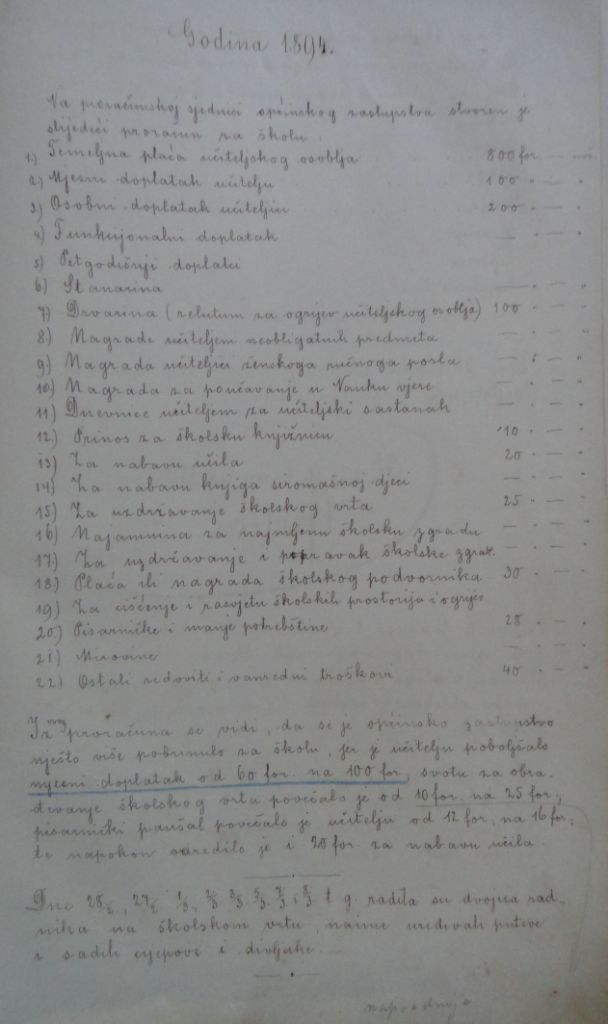 Godina 1894.
Na proračunskoj sjednici općinskog zastupstva stvoren je
slijedeći proračun za školu
1.) Temeljna plaća učiteljskog osoblja 800 for. — nvč.
2.) Mjesni doplatak učitelju 100 " — "
3.) Osobni doplatak učiteljici 200 " — "
4.) Funkcijonalni doplatak — " — "
5) Petgodišnji doplatci
6) Stanarina — " — "
7) Drvarina (relutum za ogrijev učiteljskog osoblja) 100 " — "
8.) Nagrade učiteljem neobligatnih predmeta — " — "
9.) Nagrada učiteljici ženskoga ručnoga posla — " — "
10.) Nagrada za poučavanje u Nauku vjere — " — "
11) Dnevnice učiteljem za učiteljski sastanak — " — "
12.) Prinos za školsku knjižnicu 10 " — "
13) Za nabavu učila 20 " — "
14) Za nabavu knjiga siromašnoj djeci — " — "
15) Za uzdržavanje školskog vrta 25 " — "
16) Najamnina za najmljenu školsku zgradu — " — "
17.) Za uzdržavanje i popravak školske zgrade — " — "
18.) Plaća ili nagrada školskog podvornika 30 " — "
19) Za čišćenje i rasvjetu školskih prostorija i ogrijev — " — "
20.) Pisarničke i manje potrebštine 28 " — "
21) Mirovine — " — "
22) Ostali redoviti i vanredni troškovi 40 " — "
Iz ovog proračuna se vidi, da se je općinsko zastupstvo
nješto više pobrinulo za školu, jer je učitelju poboljšalo
mjesni doplatak od 60 for. na 100 for, svotu za obra-
đivanje školskog vrta povećalo je od 10 for. na 25 for.,
pisarnički paušal povećalo je učitelju od 12 for, na 16 for,
te napokon odredilo je i 20 for. za nabavu učila.
Dne 28/2, 27/2 1/3, 2/3, 3/3, 5/3, 7/3 i 8/3 t g. radila su dvojica rad-
nika na školskom vrtu, naime uređivali puteve
i sadili cjepove i divljake.